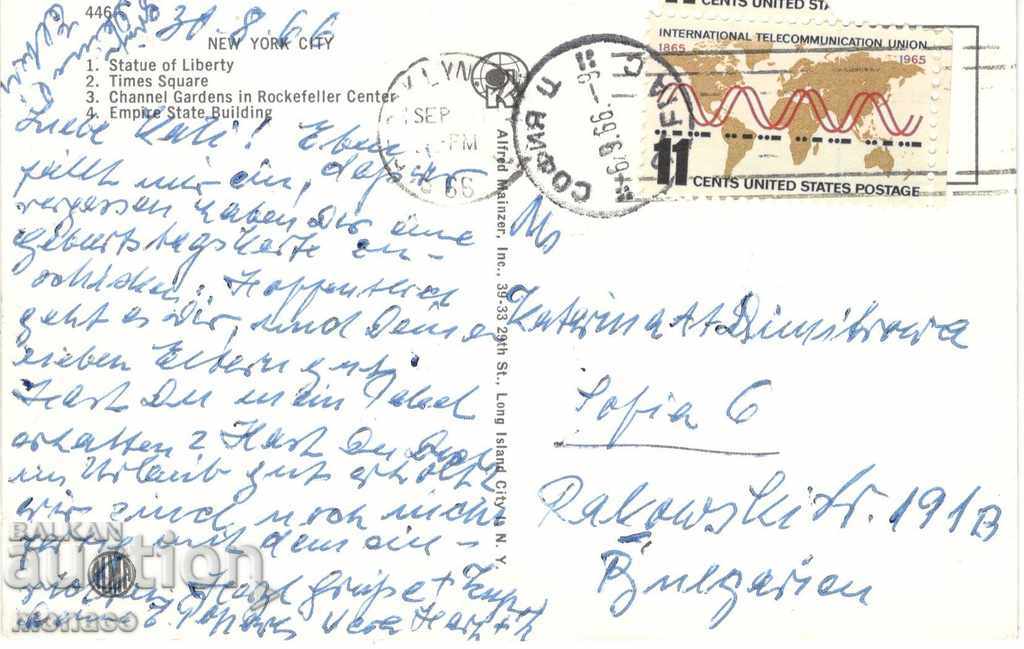 446
30-8-66
NEW YORK CITY
1. Statue of Liberty
2. Times Square
3. Channel Gardens in Rockefeller Center
4. Empire State Building
Liebe Kati! Eben
fällt mir ein, daß wir
vergessen haben Dir eine
Geburtstagskarte zu
schicken. Hoffentlich
geht es Dir, und Deinen
lieben Eltern gut.
Hast Du mein Paket
erhalten? Hast Du Dich
im Urlaub gut erholt?
wir sind noch nicht
mit dem
Herzl. Grüße +
Alfred Mainzer, Inc., 39-33 29th St., Long Island City 1, N. Y.
SEP
PM
66
СОФИЯ Ц
SOFIA
CENTS UNITED STA
INTERNATIONAL TELECOMMUNICATION UNION
1865
1965
11 CENTS UNITED STATES POSTAGE
Katerina At Dimitrowa
Sofia 6
Rakowski Str. 191B
Bulgarien
BALKAN
auction
monaco